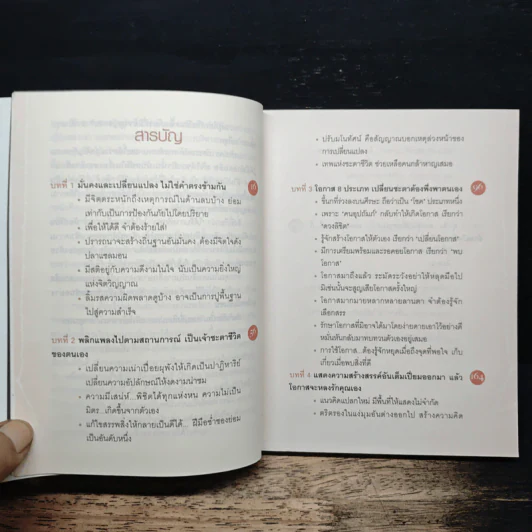 สารบัญ
บทที่ 1 มั่นคงและเปลี่ยนแปลง ไม่ใช่คำตรงข้ามกัน
• มีจิตตระหนักถึงเหตุการณ์ในด้านลบบ้าง ย่อม
เท่ากับเป็นการป้องกันภัยไปโดยปริยาย
• เพื่อให้ได้ดี จำต้องร้ายใส่!
• ปรารถนาจะสร้างถิ่นฐานอันมั่นคง ต้องมีจิตใจดั่ง
ปลาแซลมอน
• มีสติอยู่กับความดีงามในใจ นับเป็นความยิ่งใหญ่
แห่งจิตวิญญาณ
• ลิ้มรสความผิดพลาดดูบ้าง อาจเป็นการปูพื้นฐาน
ไปสู่ความสำเร็จ
บทที่ 2 พลิกแพลงไปตามสถานการณ์ เป็นเจ้าชะตาชีวิต
ของตนเอง
• เปลี่ยนความเน่าเปื่อยผุพังให้เกิดเป็นปาฏิหาริย์
เปลี่ยนความอัปลักษณ์ให้งดงามน่าชม
• ความมีเสน่ห์...พิชิตได้ทุกแห่งหน ความไม่เป็น
มิตร...เกิดขึ้นจากตัวเอง
• แก้ไขสรรพสิ่งให้กลายเป็นดีได้... ฝีมือช่ำของย่อม
เป็นอันดับหนึ่ง
• ปรับมโนทัศน์ คือสัญญาณบอกเหตุล่วงหน้าของ
การเปลี่ยนแปลง
• เทพแห่งชะตาชีวิต ช่วยเหลือคนกล้าหาญเสมอ
บทที่ 3 โอกาส ๘ ประเภท เปลี่ยนชะตาต้องพึ่งพาตนเอง
• ขึ้นกี่ที่วงลงบนศีรษะ ถือว่าเป็น "โชค" ประเภทหนึ่ง
• เพราะ "คนอุปถัมภ์" กลับทำให้เกิดโอกาส เรียกว่า
"ดวงลิขิต"
• รู้จักสร้างโอกาสให้ตัวเอง เรียกว่า "เปลี่ยนโอกาส"
• มีการเตรียมพร้อมและรอคอยโอกาส เรียกว่า "พบ
โอกาส"
• โอกาสมาถึงแล้ว ระมัดระวังอย่าให้หลุดมือไป
มิเช่นนั้นจะสูญเสียโอกาสครั้งใหญ่
• โอกาสมากมายหลากหลายลานตา จำต้องรู้จัก
เลือกสรร
• รักษาโอกาสที่มิอาจได้มาโดยง่ายดายเอาไว้อย่างดี
หมั่นหันกลับมาทบทวนตัวเองอยู่เสมอ
• การใช้โอกาส...ต้องรู้จักหยุดเมื่อถึงจุดที่พอใจ เก็บ
เกี่ยวเมื่อพบสิ่งที่ดี
บทที่ 4 แสดงความสร้างสรรค์อันเต็มเปี่ยมออกมา แล้ว
โอกาสจะหลงรักคุณเอง
• แนวคิดแปลกใหม่ มีพื้นที่ให้แสดงไม่จำกัด
• ตริตรองในแง่มุมอันต่างออกไป สร้างความคิด